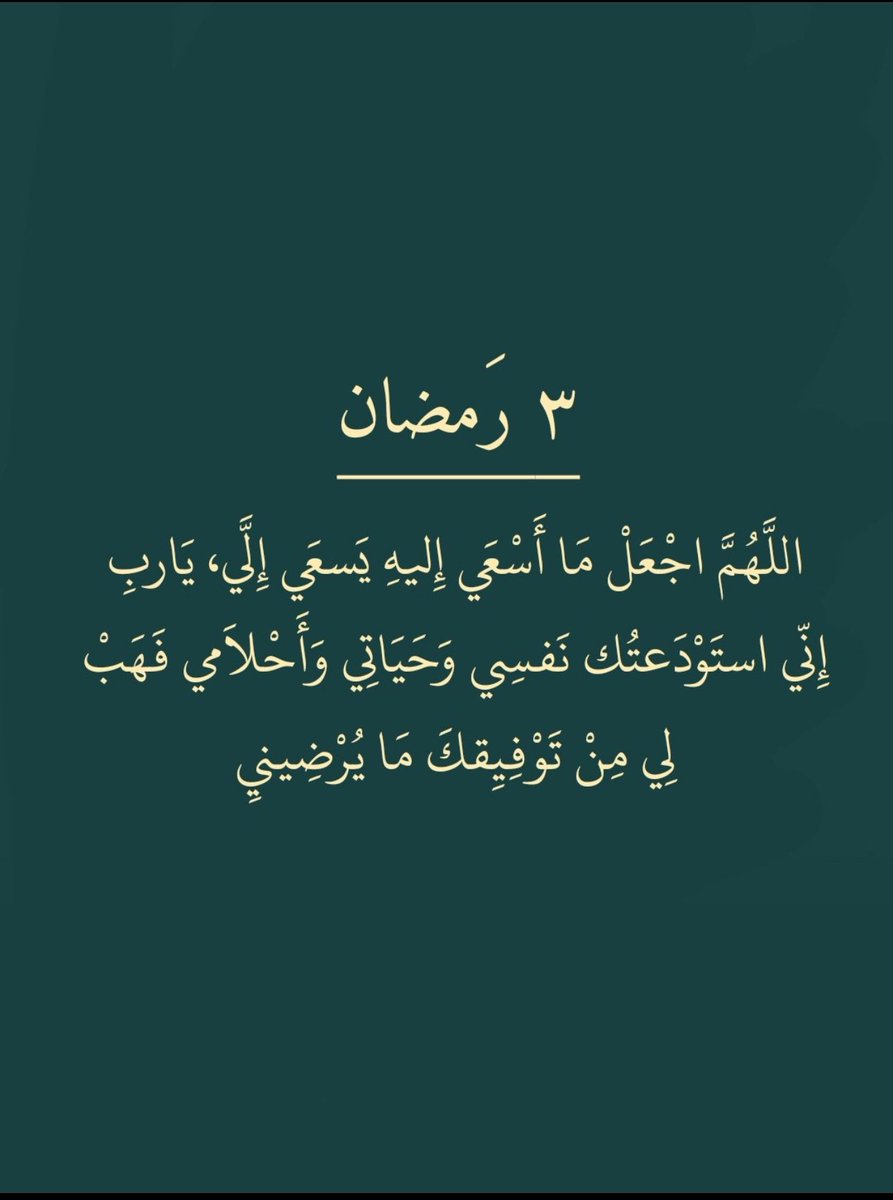 ٣ رَمضان
اللَّهُمَّ اجْعَلْ مَا أَسْعَي إِليهِ يَسعَي إِلَّي، يَاربِ
إِنّي استَوْدَعتُك نَفسِي وَحَيَاتِي وَأَحْلاَمي فَهَبْ
لِي مِنْ تَوْفِيِقكَ مَا يُرْضِينيِ